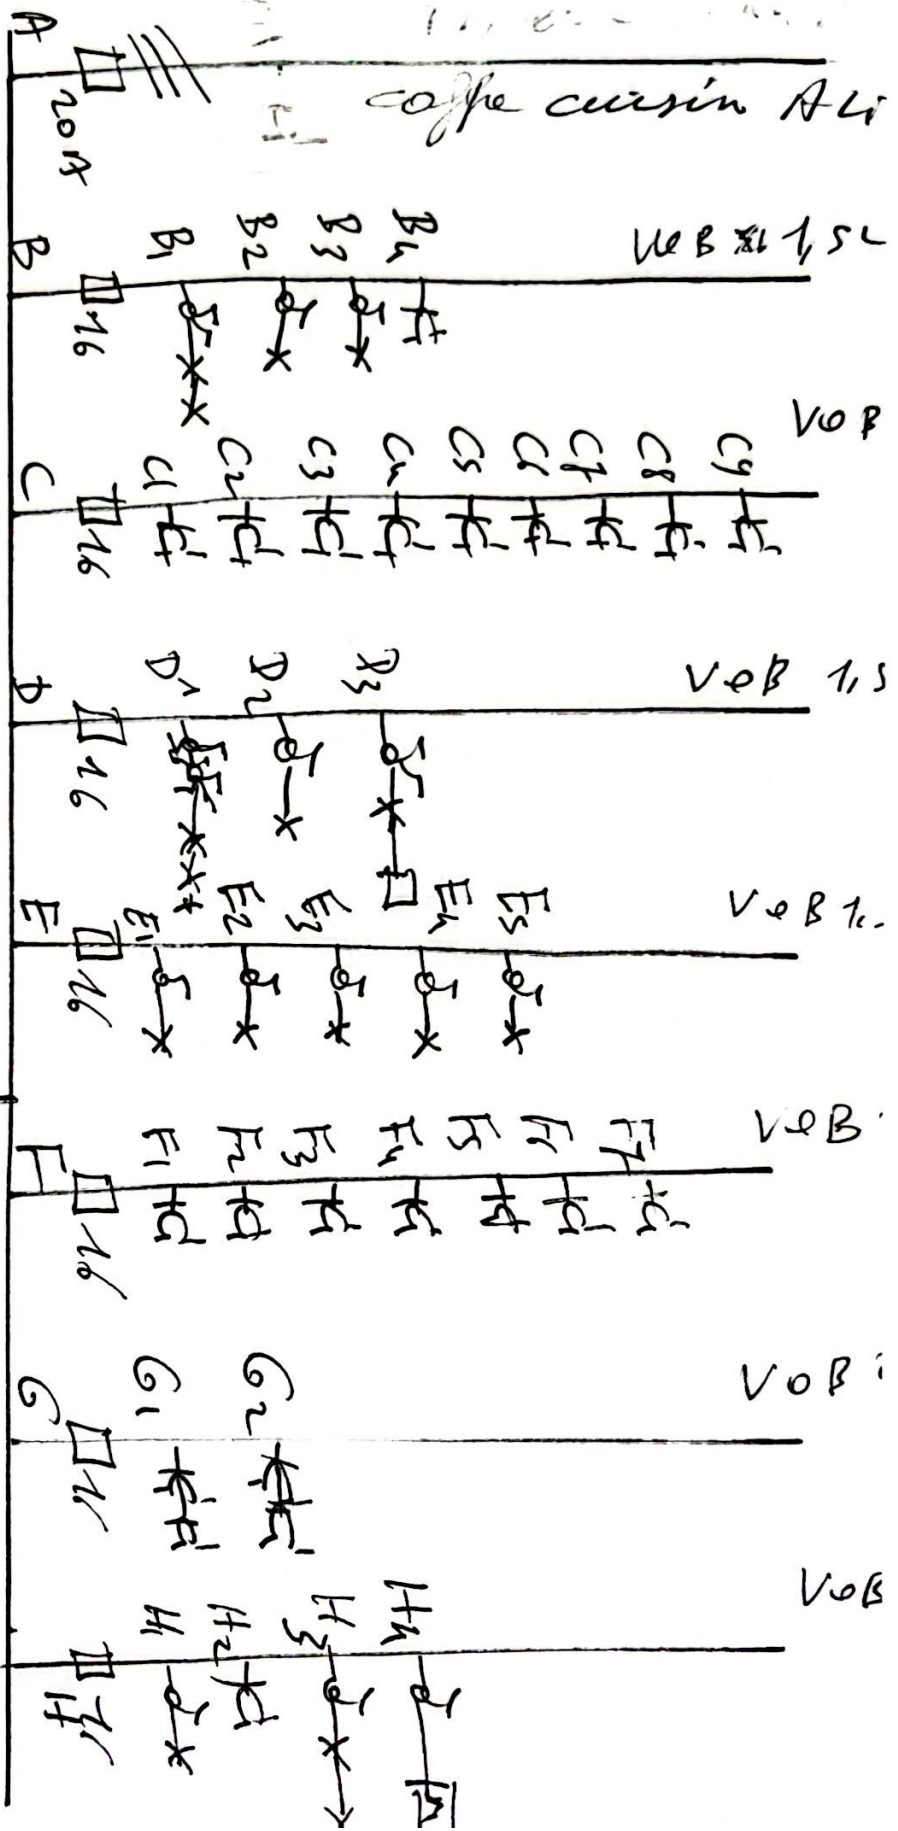 A 20A
coffre cuisin Ali
B 16 B1 B2 B3 B4 VOB 1,5
C 16 C1 C2 C3 C4 C5 C6 C7 C8 C9 VOB
D 16 D1 D2 D3 VOB 1,5
E 16 E1 E2 E3 E4 E5 VOB 1
F 16 F1 F2 F3 F4 F5 F6 F7 VOB
G G1 G2 VOB
H H1 H2 H3 H4 VOB